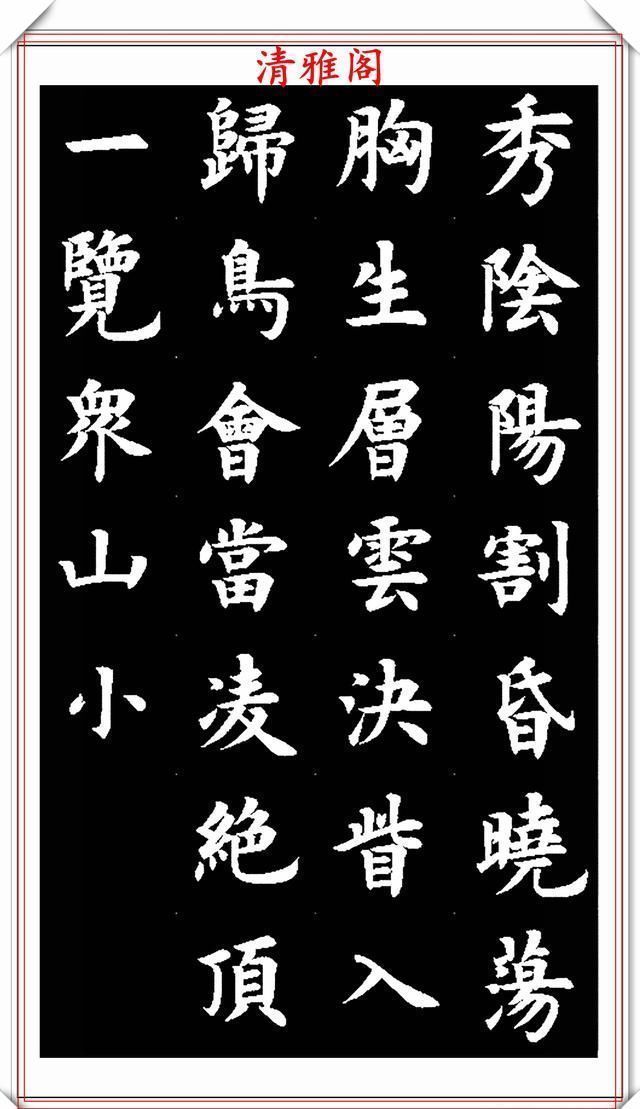 清雅阁
秀陰陽割昏曉蕩
胸生層雲決眥入
歸鳥會當凌絕頂
一覽衆山小